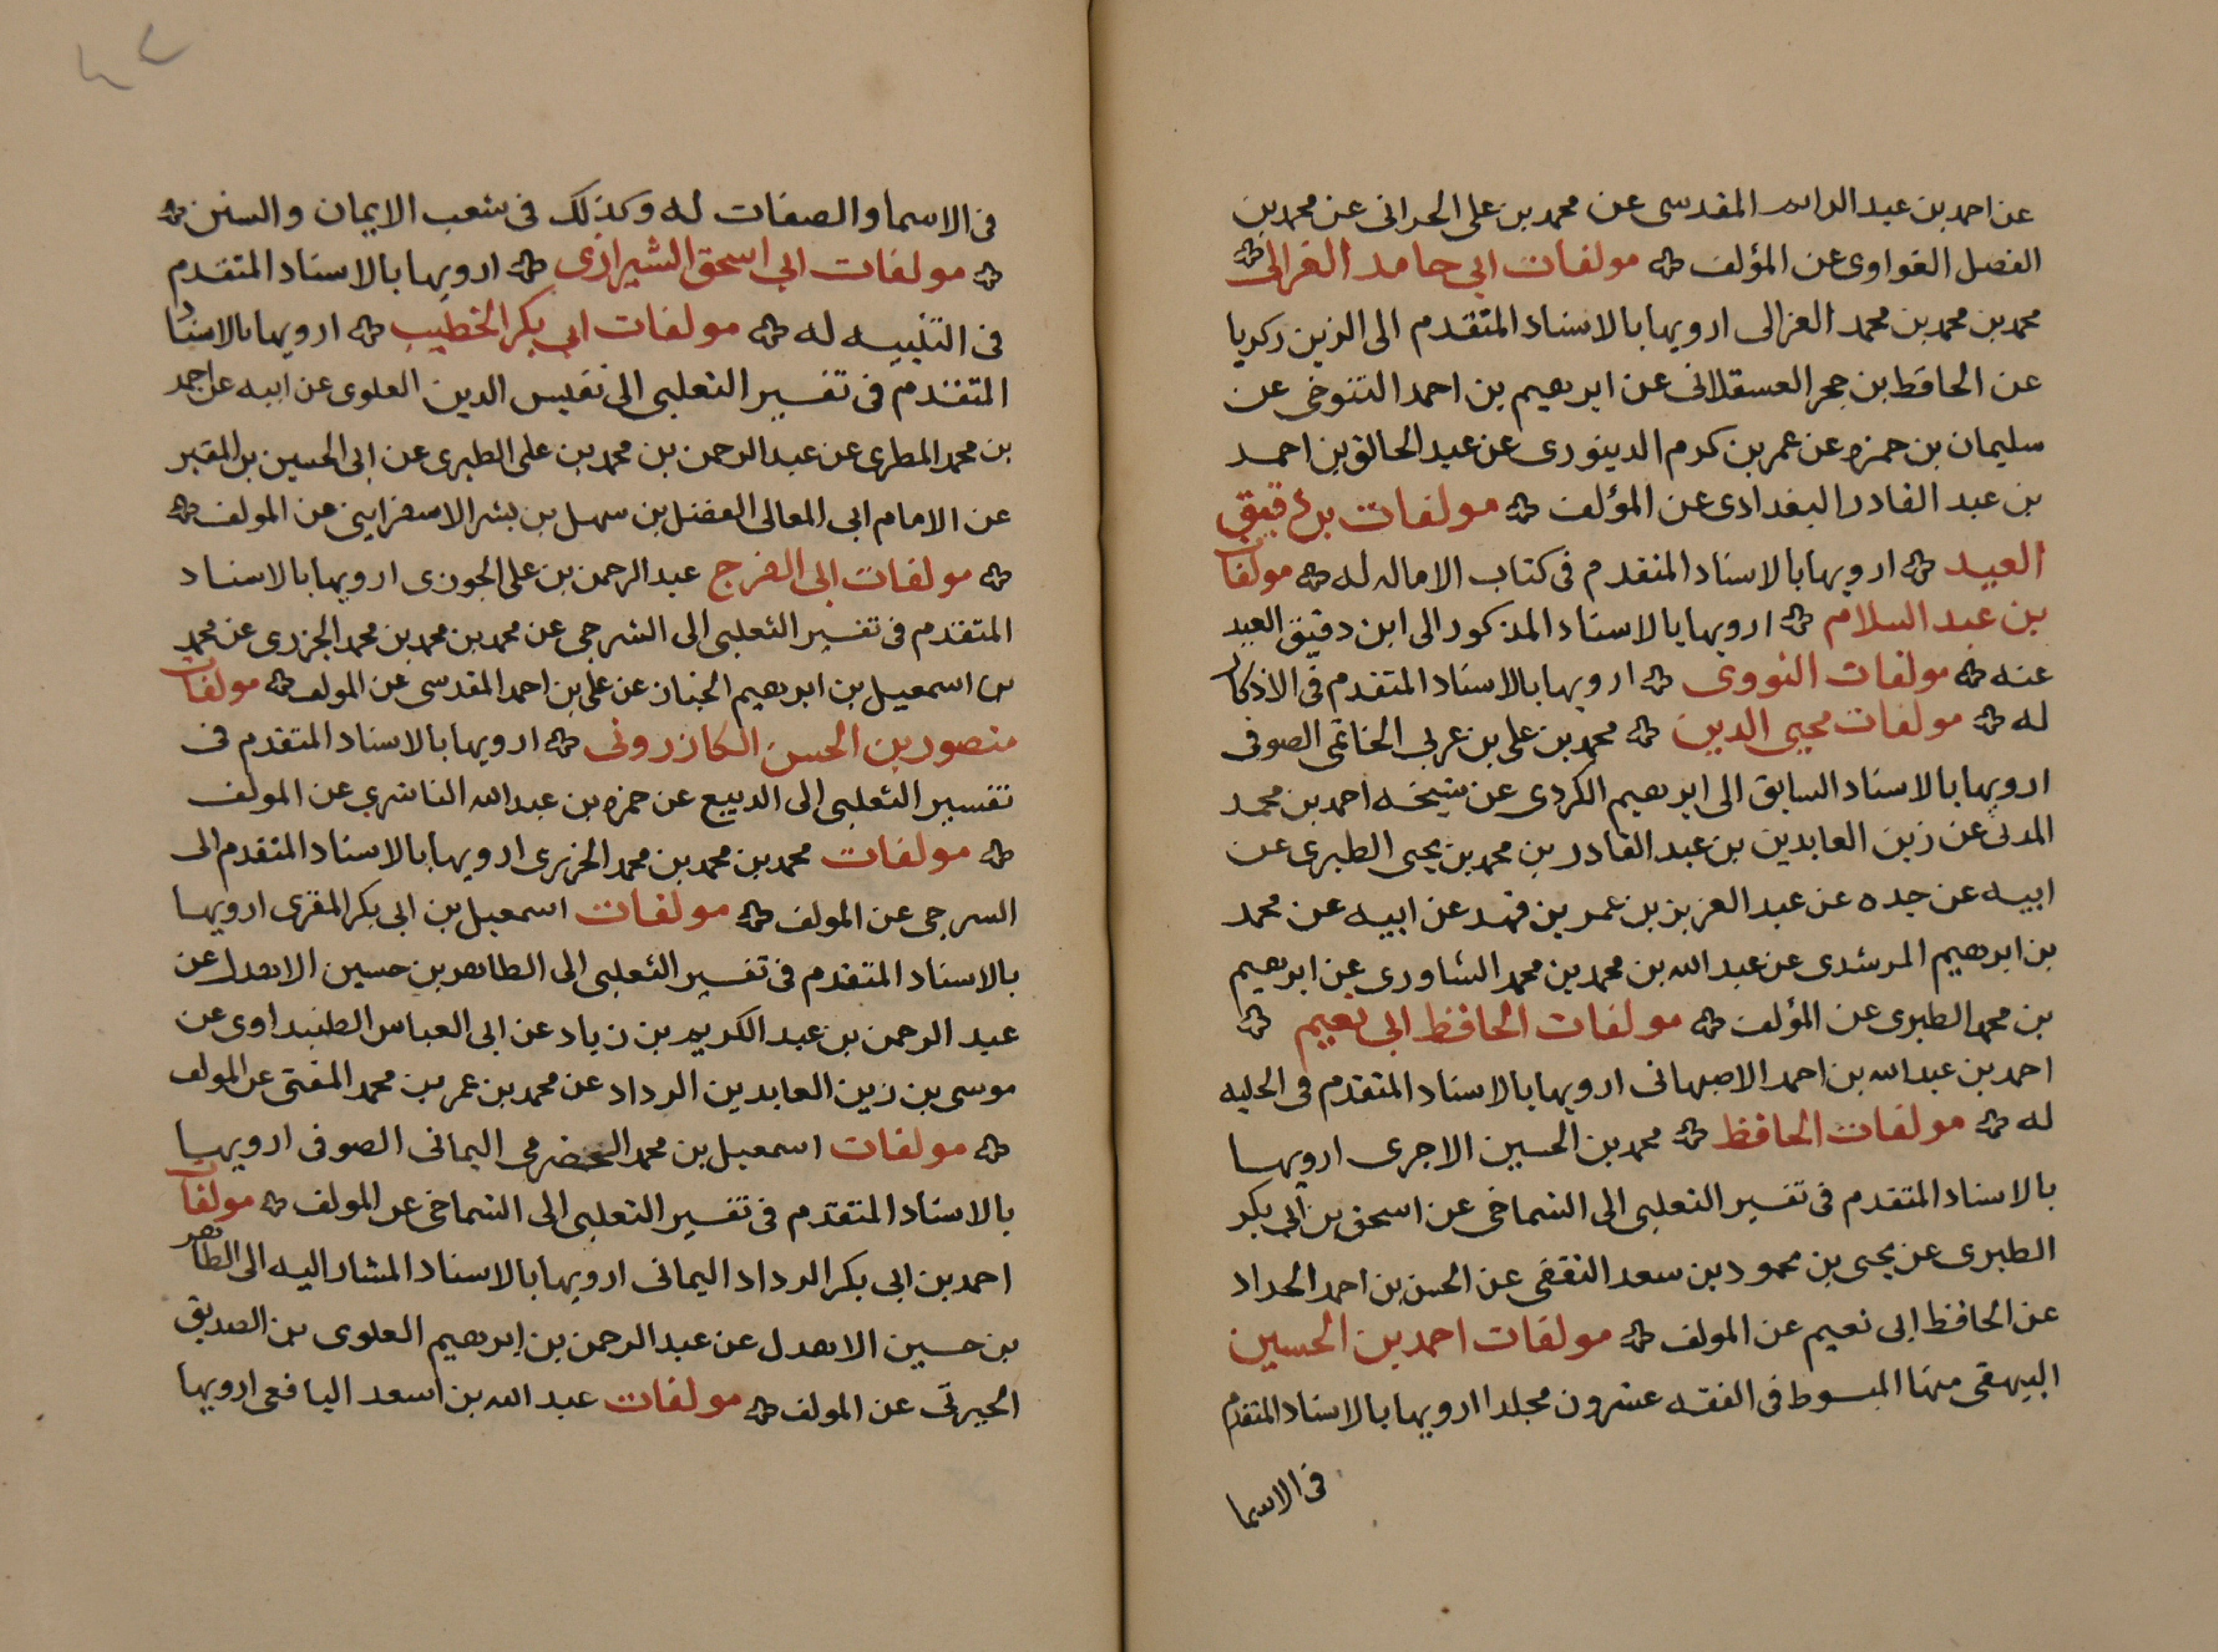 عن احمد بن عبد الدايم المقدسى عن محمد بن على الحرانى عن محمد بن
الفضل الفراوى عن المؤلف مولفات ابي حامد الغزالى
محمد بن محمد بن محمد الغزالى ارويها بالاسناد المتقدم الى الزين زكريا
عن الحافظ بن حجر العسقلانى عن ابرهيم بن احمد التنوخى عن
سليمان بن حمزه عن عمر بن كرم الدينورى عن عبد الخالق بن احمد
بن عبد القادر البغدادى عن المؤلف مولفات بن دقيق
العيد ارويها بالاسناد المتقدم فى كتاب الامام له مولفات
بن عبد السلام ارويها بالاسناد المذكور الى ابن دقيق العيد
عنه مولفات النووى ارويها بالاسناد المتقدم فى الاذكار
له مولفات محيى الدين محمد بن على بن عربى الحاتمى الصوفى
ارويها بالاسناد السابق الى ابرهيم الكردى عن شيخه احمد بن محمد
المدنى عن زين العابدين بن عبد القادر بن محمد بن يحيى الطبرى عن
ابيه عن جده عن عبد العزيز بن عمر بن فهد عن ابيه عن محمد
بن ابرهيم المرشدى عن عبد الله بن محمد بن محمد الشاورى عن ابرهيم
بن محمد الطبرى عن المؤلف مولفات الحافظ ابى نعيم
احمد بن عبد الله بن احمد الاصبهانى ارويها بالاسناد المتقدم فى الحليه
له مولفات الحافظ محمد بن الحسين الاجرى ارويها
بالاسناد المتقدم فى تفسير الثعلبى الى الشماخى عن اسحق بن ابى بكر
الطبرى عن يحيى بن محمود بن سعد الثقفى عن الحسن بن احمد الحداد
عن الحافظ ابى نعيم عن المولف مولفات احمد بن الحسين
البيهقى منها المبسوط فى الفقه عشرون مجلدا ارويها بالاسناد المتقدم
فى الاسما
فى الاسما والصفات له وكذلك فى شعب الايمان والسنن
مولفات ابى اسحق الشيرازى ارويها بالاسناد المتقدم
فى التنبيه له مولفات ابى بكر الخطيب ارويها بالاسناد
المتقدم فى تفسير الثعلبى الى نفيس الدين العلوى عن ابيه عن احمد
بن محمد المطرى عن عبد الرحمن بن محمد بن على الطبرى عن ابى الحسين بن المقير
عن الامام ابى المعالى الفضل بن سهل بن بشر الاسفراينى عن المولف
مولفات ابى الفرج عبد الرحمن بن على الجوزى ارويها بالاسناد
المتقدم فى تفسير الثعلبى الى الشرجى عن محمد بن محمد بن محمد الجزرى عن محمد
بن اسمعيل بن ابرهيم الخباز عن على بن احمد المقدسى عن المولف مولفات
منصور بن الحسن الكازرونى ارويها بالاسناد المتقدم فى
تفسير الثعلبى الى الديبع عن حمزه بن عبد الله الناشرى عن المولف
مولفات محمد بن محمد بن محمد الجزرى ارويها بالاسناد المتقدم الى
السرجى عن المولف مولفات اسمعيل بن ابى بكر المقرى ارويها
بالاسناد المتقدم فى تفسير الثعلبى الى الطاهر بن حسين الاهدل عن
عبد الرحمن بن عبد الكريم بن زياد عن ابى العباس الطنبداوى عن
موسى بن زين العابدين الرداد عن محمد بن عمر بن محمد المفتى عن المولف
مولفات اسمعيل بن محمد الحضرمى اليمانى الصوفى ارويها
بالاسناد المتقدم فى تفسير الثعلبى الى الشماخى عن المولف مولفات
احمد بن ابى بكر الرداد اليمانى ارويها بالاسناد المشار اليه الى الطاهر
بن حسين الاهدل عن عبد الرحمن بن ابرهيم العلوى بن الصديق
الجبرتى عن المولف مولفات عبد الله بن اسعد اليافعى ارويها